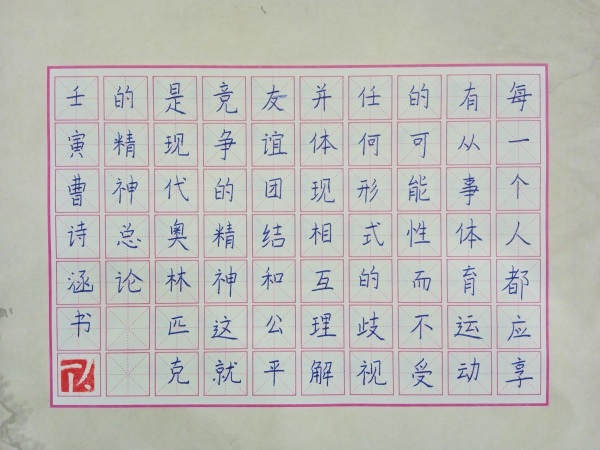 每一个人都应享
有从事体育运动
的可能性而不受
任何形式的歧视
并体现相互理解
友谊团结和公平
竞争的精神这就
是现代奥林匹克
的精神总论
壬寅曹诗涵书